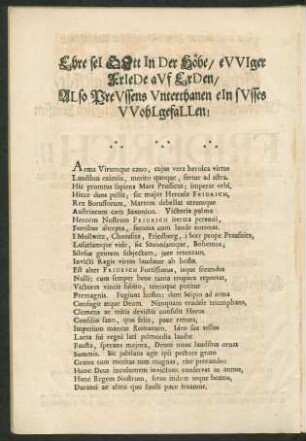 Ehre seI GOtt In Der Höhe/ eVVIger
FrIeDe aVf ErDen/
ALso PreVssens Vnterthanen eIn sVsses
VVohLgefaLLen:
Arma Virumque cano, cujus vera heroica virtus
Laudibus eximiis, merito quoque, fertur ad astra.
Hic promtus sapiens Mars Prussicus; imperat orbi,
Hicce duos pellit, sic major Hercule FRIDRICH,
Rex Borussorum, Martem debellat utrumque
Austriacum cum Saxonico. Victoria palma
Heroem Nostrum FRIDRICH perenni,
Fontibus abrepta, summa cum laude coronat.
I Mollwitz, Chotusitz, Friedberg, i Soor prope Prausnitz,
Lusatiamque vide, sic Saxoniamque, Bohemos,
Silesiæ gentem subjectam, jure tenentem.
Invicti Regis vires laudatur ab hoste.
Est alter FRIDRICH Fortissimus, inque secundus
Nulli; cum semper bene tanta tropæa reportet,
Victores vincit subito, totiesque potitur
Permagnis. Fugiunt hostes: dum Scipio ad arma
Confugit atque Deum. Nunquam crudele triumphans,
Clemens ac mitis devictis consulit Heros
Consilio sano, quo felix, pace remota,
Imperium monens Romanum. Jam sua tellus
Læta sui regni lati primordia laudat
Fausta, sperans majora, Deum nunc laudibus ornat
Summis. Sic jubilans agit ipsi pectore grato
Grates cum meritas tum magnas, rite precando:
Hunc Deus incolumem invictum conservet in annos,
Hunc Regem Nostrum, seros itidem atque beatos,
Durant ac almo quo fausti pace fruamur.